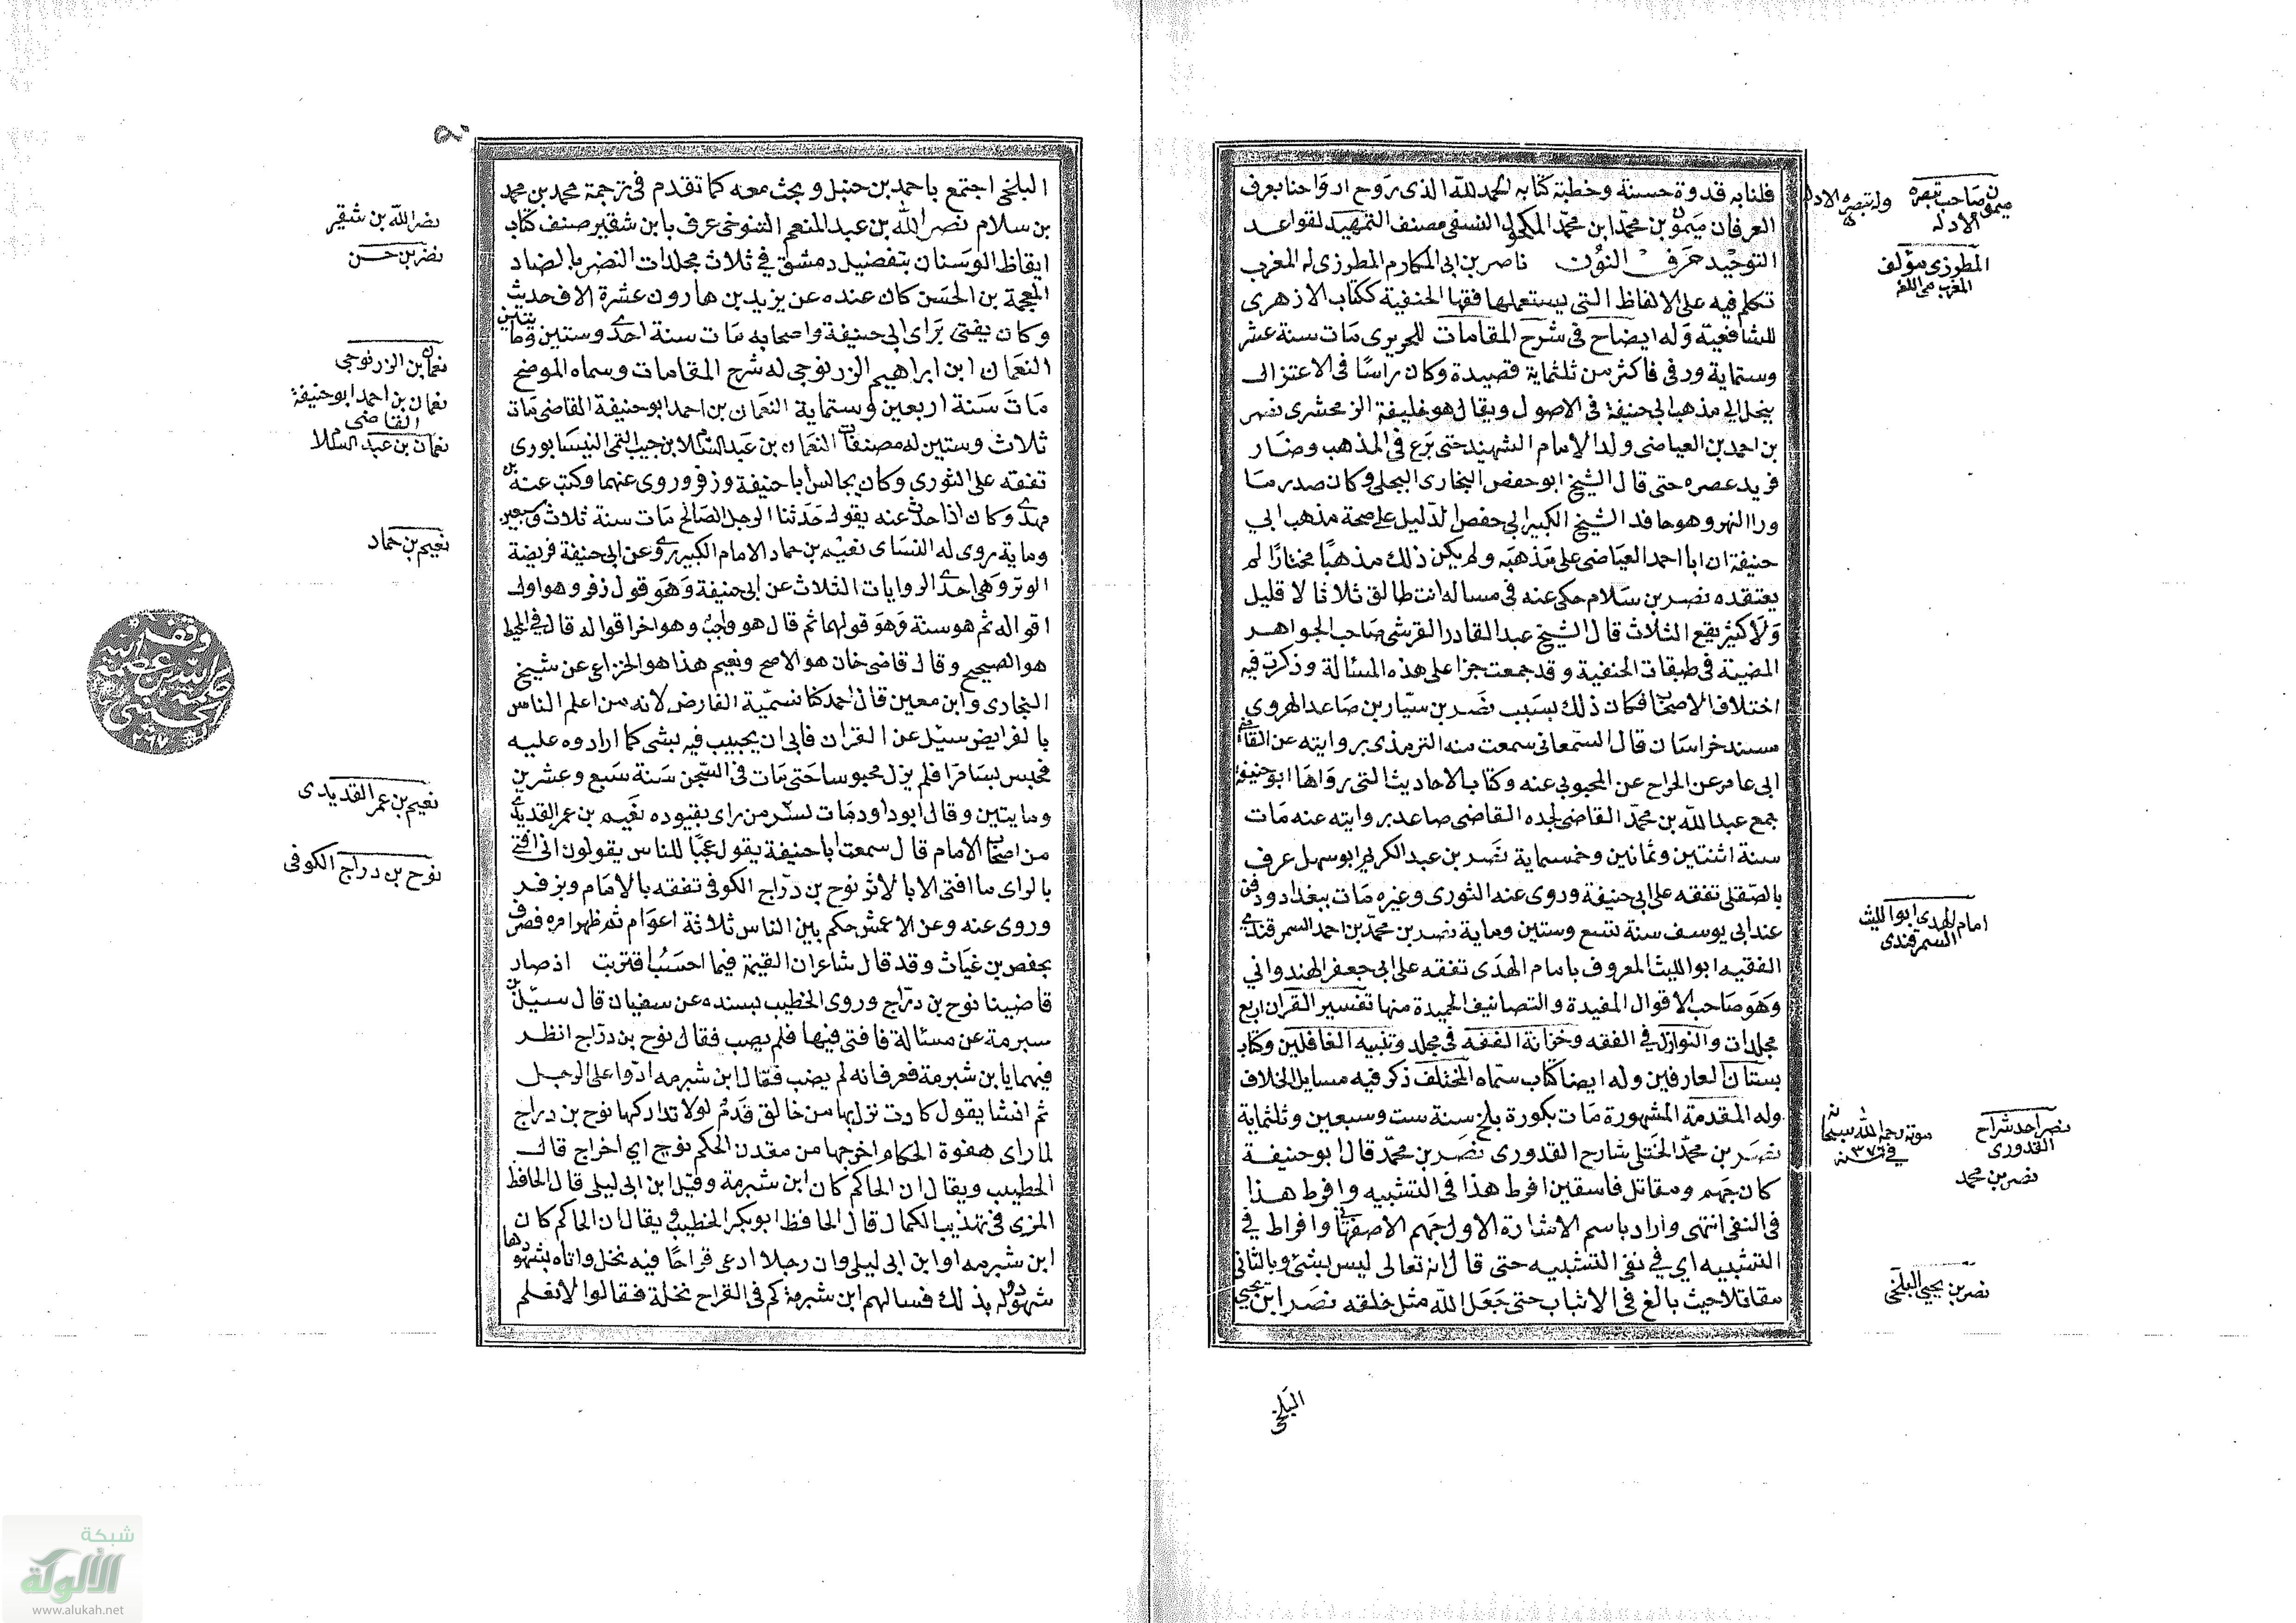 فلنا به قدوة حسنة وخطبة كتابه الحمد لله الذى روح ارواحنا بعرف
العرفان ميمون بن محمد ابن محمد المكحولى النسفى مصنف التمهيد لقواعد
التوحيد حرف النون ناصر بن ابى المكارم المطرزى له المغرب
تكلم فيه على الالفاظ التى يستعملها فقها الحنفية ككتاب الازهرى
للشافعية وله ايضاح فى شرح المقامات للحريرى مات سنة عشر
وستماية ورثى فاكثر من ثلثماية قصيدة وكان راسا فى الاعتزال
ينحل الى مذهب ابى حنيفة فى الاصول ويقال هو خليفة الزمخشرى نصر
بن احمد بن العياضى ولد الامام الشهيد حتى برع فى المذهب وصار
فريد عصره حتى قال الشيخ ابو حفص البخارى البجلى وكان صدر ما
ورا النهر وهو حافد الشيخ الكبير ابى حفص الدليل على صحة مذهب ابي
حنيفة ان ابا احمد العياضى على مذهبه ولم يكن ذلك مذهبا مختارا لم
يعتقده نصر بن سلام حكى عنه فى مساله انت طالق ثلاثا لا قليل
ولا كثير يقع الثلاث قال الشيخ عبد القادر القرشى صاحب الجواهر
المضية فى طبقات الحنفية وقد جمعت جزا على هذه المسالة وذكرت فيه
اختلاف الاصحاب فكان ذلك بسبب نصر بن سيار بن صاعد الهروى
مسند خراسان قال السمعانى سمعت منه الترمذى بروايته عن القاضى
ابى عامر عن الجراح عن المحبوبى عنه وكتاب الاحاديث التى رواها ابو حنيفة
جمع عبد الله بن محمد القاضى لجده القاضى صاعد بروايته عنه مات
سنة اثنتين وثمانين وخمسماية نصر بن عبد الكريم ابو سهل عرف
بالصقلى تفقه على ابى حنيفة وروى عنه الثورى وغيره مات ببغداد ودفن
عند ابى يوسف سنة تسع وستين وماية نصر بن محمد بن احمد السمرقندى
الفقيه ابو الليث المعروف بامام الهدى تفقه على ابى جعفر الهندوانى
وهو صاحب الاقوال المفيدة والتصانيف الحميدة منها تفسير القران اربع
مجلدات والنوازل في الفقه وخزانة الفقه فى مجلد وتنبيه الغافلين وكتاب
بستان العارفين وله ايضا كتاب سماه المختلف ذكر فيه مسايل الخلاف
وله المقدمة المشهورة مات بكورة بلخ سنة ست وسبعين وثلثماية
نصر بن محمد الختلى شارح القدورى نصر بن محمد قال ابو حنيفة
كان جهم ومقاتل فاسقين افرط هذا فى التشبيه وافرط هذا
فى النفى انتهى واراد باسم الاشارة الاول جهم الاصفهانى وافراط في
التشبيه اي في نفى التشبيه حتى قال انه تعالى ليس بشئ وبالثانى
مقاتلا حيث بالغ فى الاثبات حتى جعل الله مثل خلقه نصر ابن يحيى
البلخى
ميمون صاحب تبصرة
الادله
وله تبصرة الادلة
المطرزى مؤلف
المغرب فى اللغة
امام الهدى ابو الليث
السمرقندى
نصر احد شراح
القدورى
موته رحمه الله سبحانه
فى سنة ٣٧٦
نصر بن محمد
نصر بن يحيى البلخى
البلخى اجتمع باحمد بن حنبل وبحث معه كما تقدم فى ترجمة محمد بن محمد
بن سلام نصر الله بن عبد المنعم التنوخى عرف بابن شقير صنف كتاب
ايقاظ الوسنان بتفضيل دمشق في ثلاث مجلدات النضر بالضاد
المعجمة بن الحسن كان عنده عن يزيد بن هارون عشرة الاف حديث
وكان يفتى براى ابى حنيفة واصحابه مات سنة احدى وستين ومايتين
النعمان ابن ابراهيم الزرنوجى له شرح المقامات وسماه الموضح
مات سنة اربعين وستماية النعمان بن احمد ابو حنيفة القاضى مات
ثلاث وستين له مصنفات النعمان بن عبد السلام بن حبيب التيمى النيسابورى
تفقه على الثورى وكان يجالس ابا حنيفة وزفر وروى عنهما وكتب عنه بن
مهدى وكان اذا حدث عنه يقول حدثنا الرجل الصالح مات سنة ثلاث وسبعين
وماية روى له النساى نعيم بن حماد الامام الكبير روى عن ابى حنيفة فريضة
الوتر وهى احدى الروايات الثلاث عن ابى حنيفة وهو قول زفر وهو اول
اقواله ثم هو سنة وهو قولهما ثم قال هو واجب وهو اخر اقواله قال في المحيط
هو الصحيح وقال قاضى خان هو الاصح ونعيم هذا هو الخزاعى عن شيخ
البخارى وابن معين قال احمد كنا نسميه الفارض لانه من اعلم الناس
بالفرايض سيل عن القران فابى ان يجيبب فيه بشى كما ارادوه عليه
فحبس بسامرا فلم يزل محبوسا حتى مات فى السجن سنة سبع وعشرين
ومايتين وقال ابو داود مات بسر من راى بقيوده نعيم بن عمر القديدى
من اصحاب الامام قال سمعت ابا حنيفة يقول عجبا للناس يقولون انى افتى
بالراى ما افتى الا بالاثر نوح بن دراج الكوفى تفقه بالامام وبزفر
وروى عنه وعن الاعمش حكم بين الناس ثلاثة اعوام ثم ظهر امره فصرف
بحفص بن غياث وقد قال شاعر ان القيمة فيما احسب اقتربت اذ صار
قاضينا نوح بن دراج وروى الخطيب بسنده عن سفيان قال سيل بن
سبرمة عن مسالة فافتى فيها فلم يصب فقال نوح بن دراج انظر
فيهما يا بن شبرمة فعرف انه لم يصب فقال ابن شبرمه ادوا على الرجل
ثم انشا يقول كادت نزل بها من خالق قدم لولا تداركها نوح بن دراج
لما راى هفوة الحكام اخرجها من مقدن الحكم نوح اي اخراج قال
الخطيب ويقال ان الحاكم كان ابن شبرمة وقيل ابن ابى ليلى قال الحافظ
المزى فى تهذيب الكمال قال الحافظ ابو بكر الخطيب ويقال ان الحاكم كان
ابن شبرمه او ابن ابى ليلى وان رجلا ادعى قراحا فيه نخل واتاه بشهود
شهدوا له بذلك فسالهم ابن شبرمة كم فى القراح نخلة فقالوا لا نعلم
نصر الله بن شقير
نضر بن حسن
نعمان بن الزرنوجى
نعمان بن احمد ابو حنيفة
القاضى
نعمان بن عبد السلام
نعيم بن حماد
نعيم بن عمر القديدى
نوح بن دراج الكوفى
شبكة
الألوكة
www.alukah.net